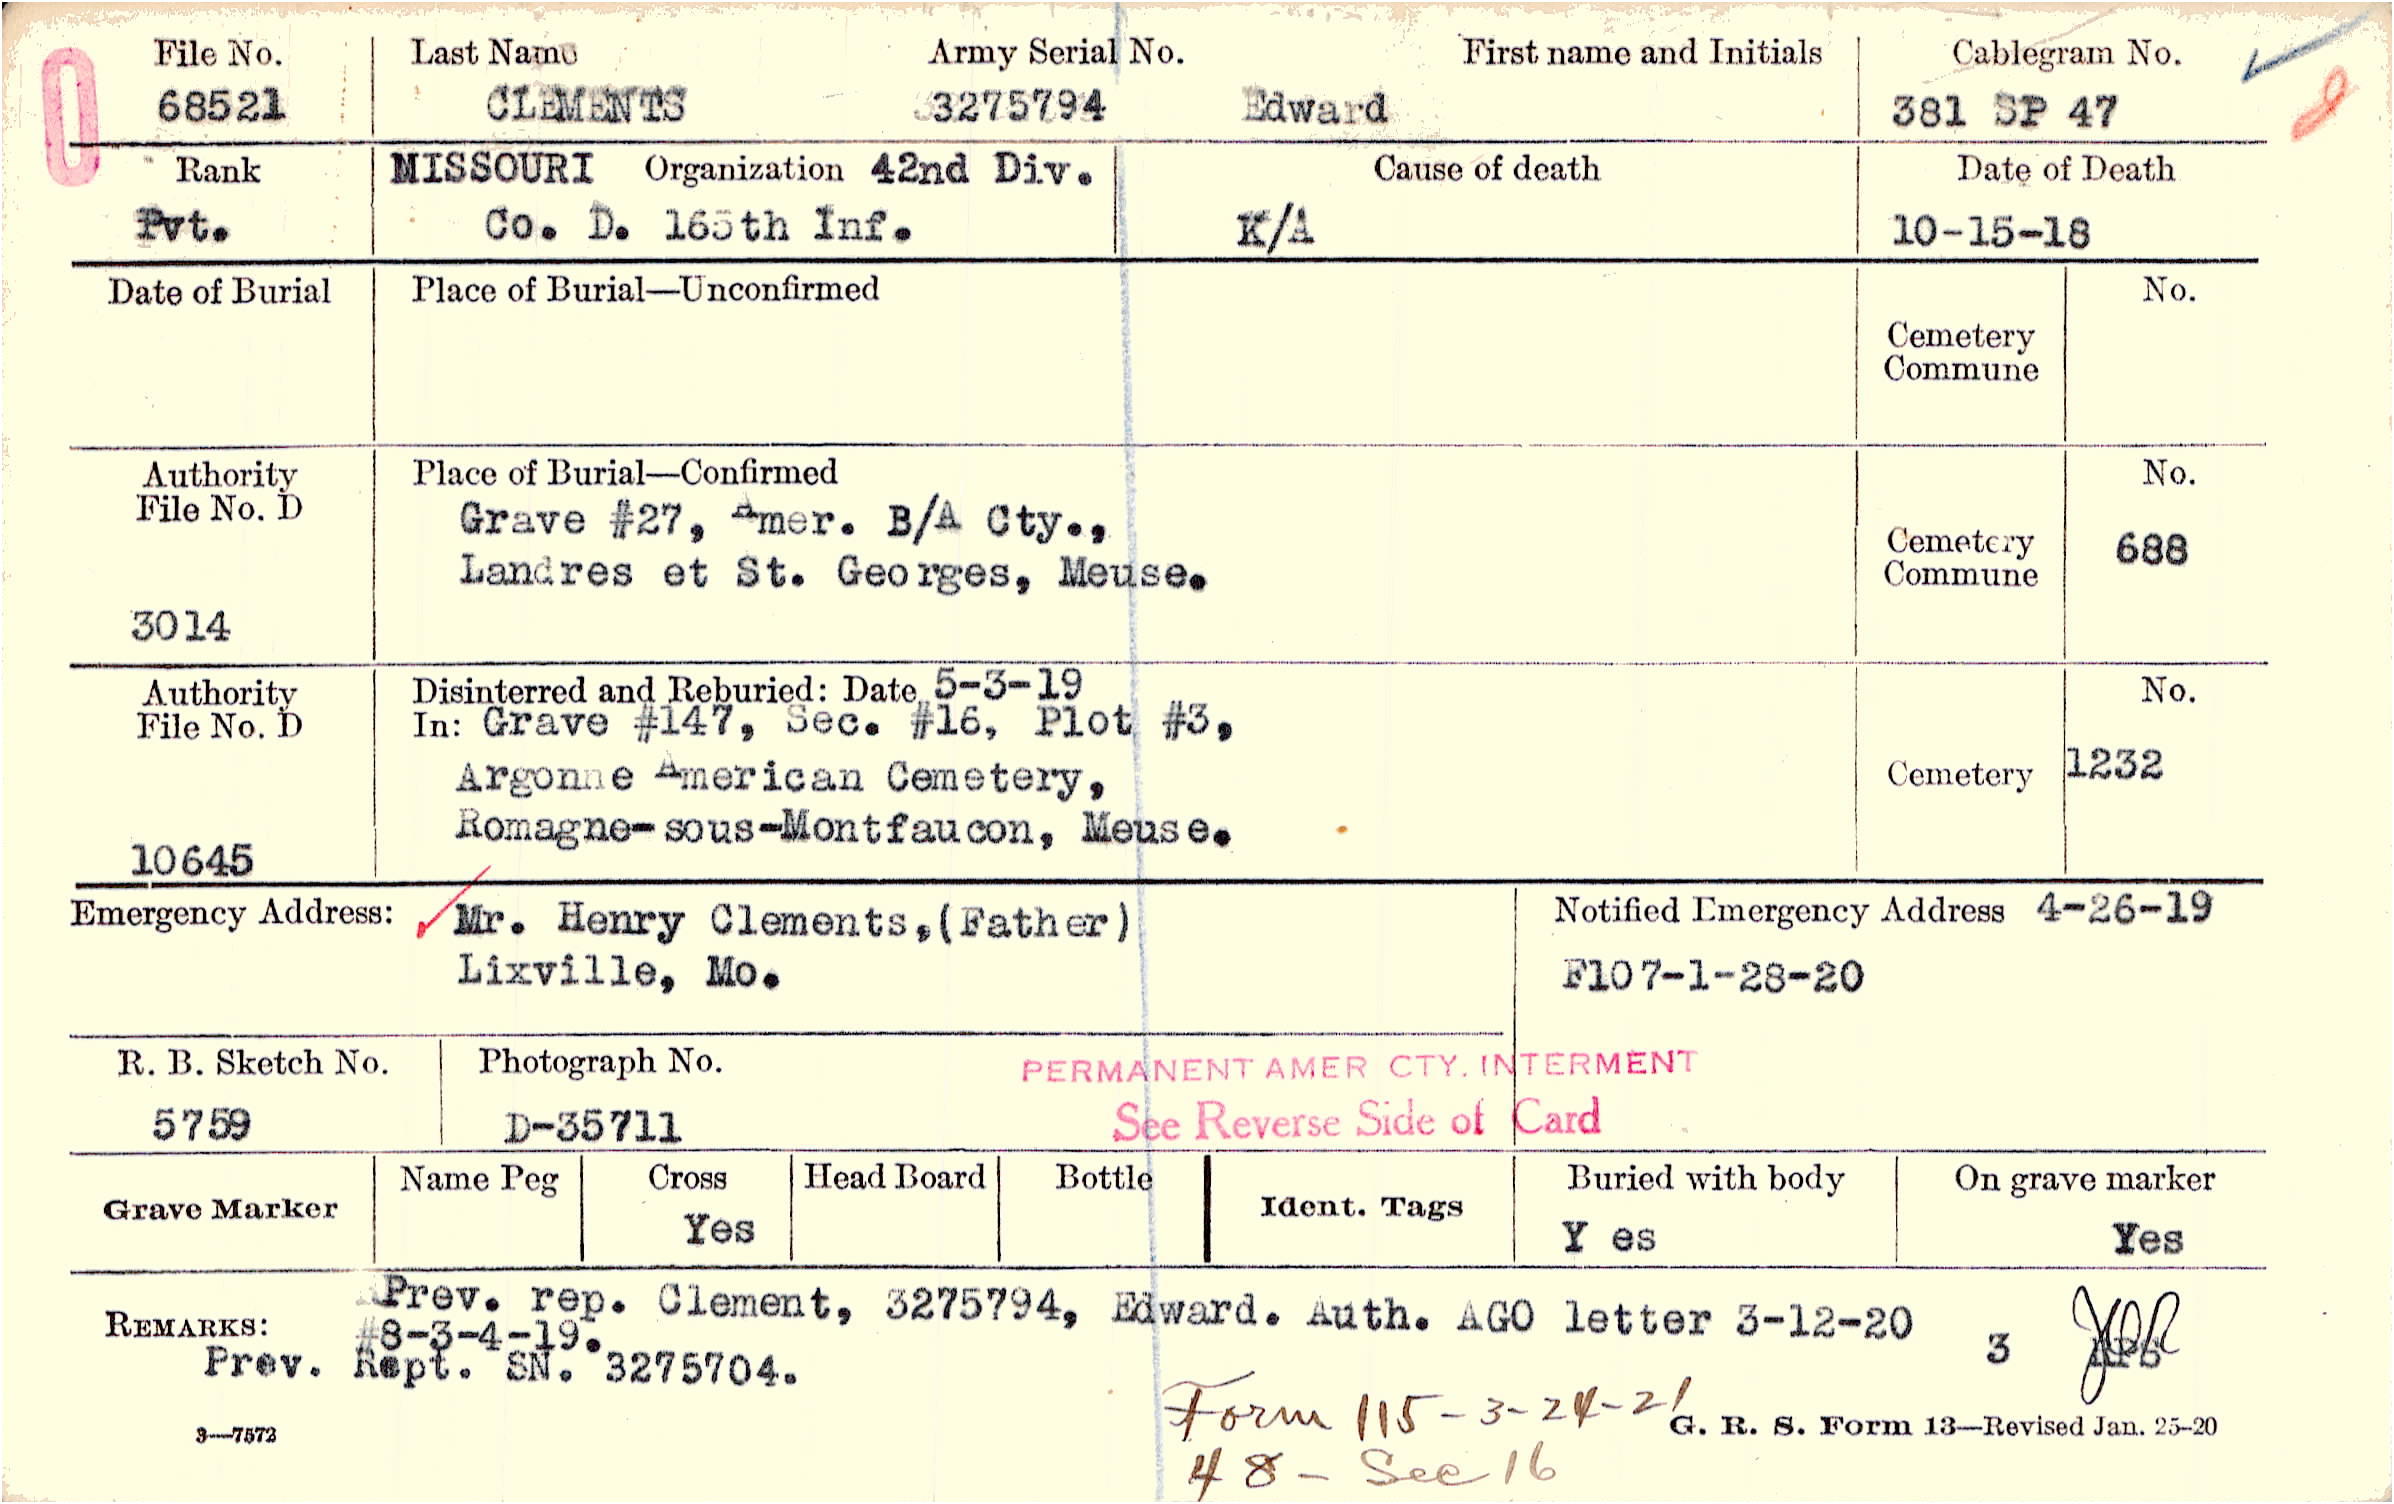 File No. Last Name Army Serial No. First name and Initials Cablegram No.
68521 CLEMENTS 3275794 Edward 381 SP 47
Rank MISSOURI Organization 42nd Div. Cause of death Date of Death
Pvt. Co. D. 165th Inf. K/A 10-15-18
Date of Burial Place of Burial—Unconfirmed No.
Cemetery
Commune
Authority Place of Burial—Confirmed No.
File No. D Grave #27, Amer. B/A Cty.,
Cemetery 688
Landres et St. Georges, Meuse. Commune
3014
Authority Disinterred and Reburied: Date 5-3-19 No.
File No. D In: Grave #147, Sec. #16, Plot #3,
Argonne American Cemetery, Cemetery 1232
Romagne-sous-Montfaucon, Meuse.
10645
Emergency Address: Mr. Henry Clements,(Father) Notified Emergency Address 4-26-19
Lixville, Mo. F107-1-28-20
R. B. Sketch No. Photograph No. PERMANENT AMER CTY. INTERMENT
5759 D-35711 See Reverse Side of Card
Grave Marker Name Peg Cross Head Board Bottle Ident. Tags Buried with body On grave marker
Yes Y es Yes
REMARKS: Prev. rep. Clement, 3275794, Edward. Auth. AGO letter 3-12-20
#8-3-4-19. 3
Prev. Rept. SN. 3275704.
Form 115-3-24-21
3—7572 G. R. S. Form 13—Revised Jan. 25-20
48 - Sec 16